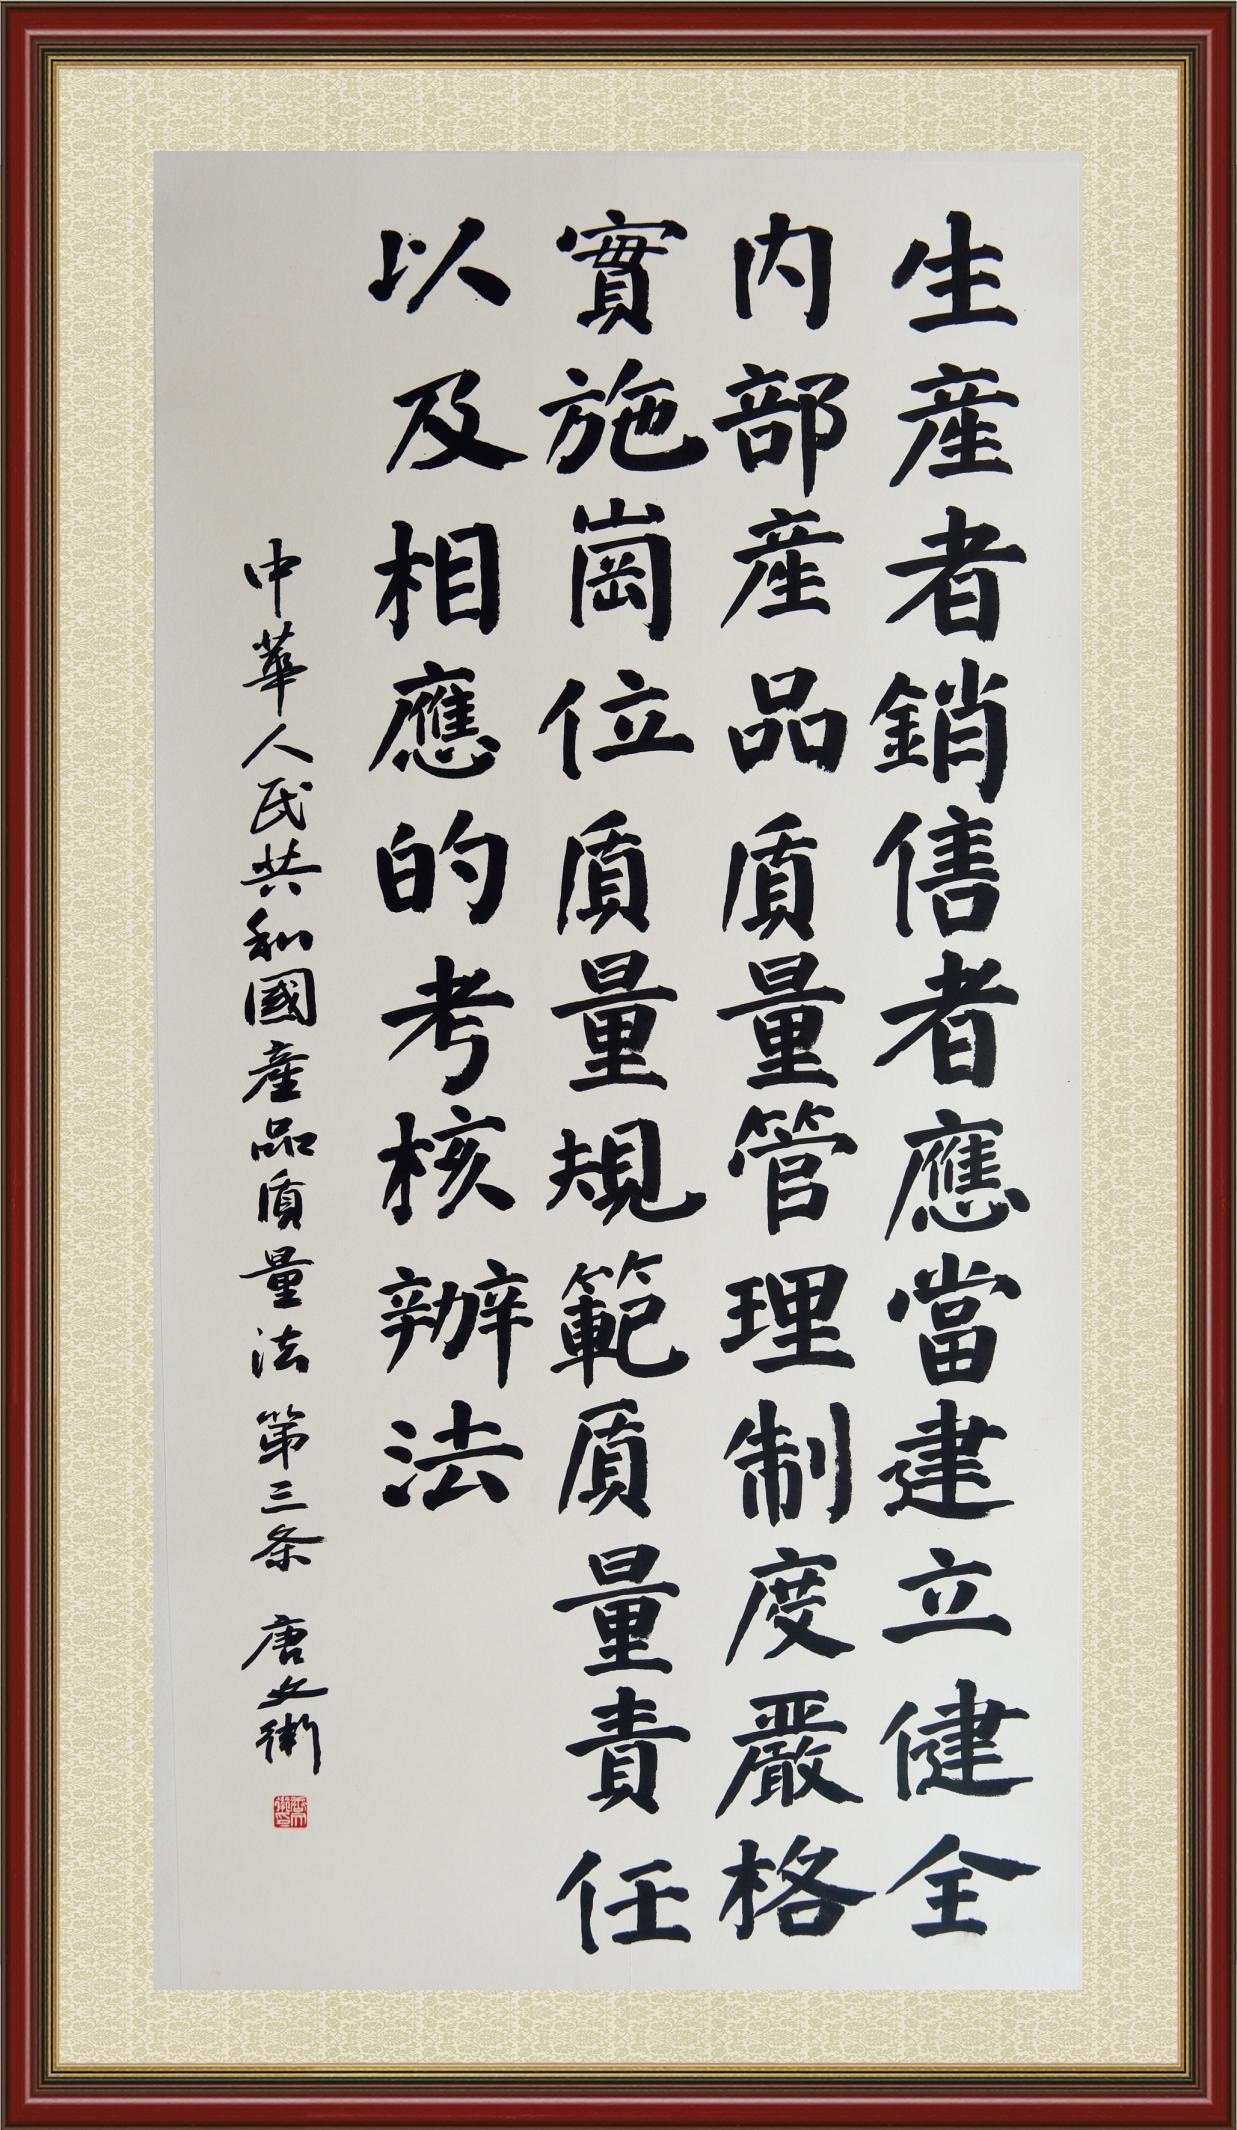 生産者銷售者應當建立健全
内部産品質量管理制度嚴格
實施崗位質量規範質量責任
以及相應的考核辦法
中華人民共和國産品質量法第三条 唐文